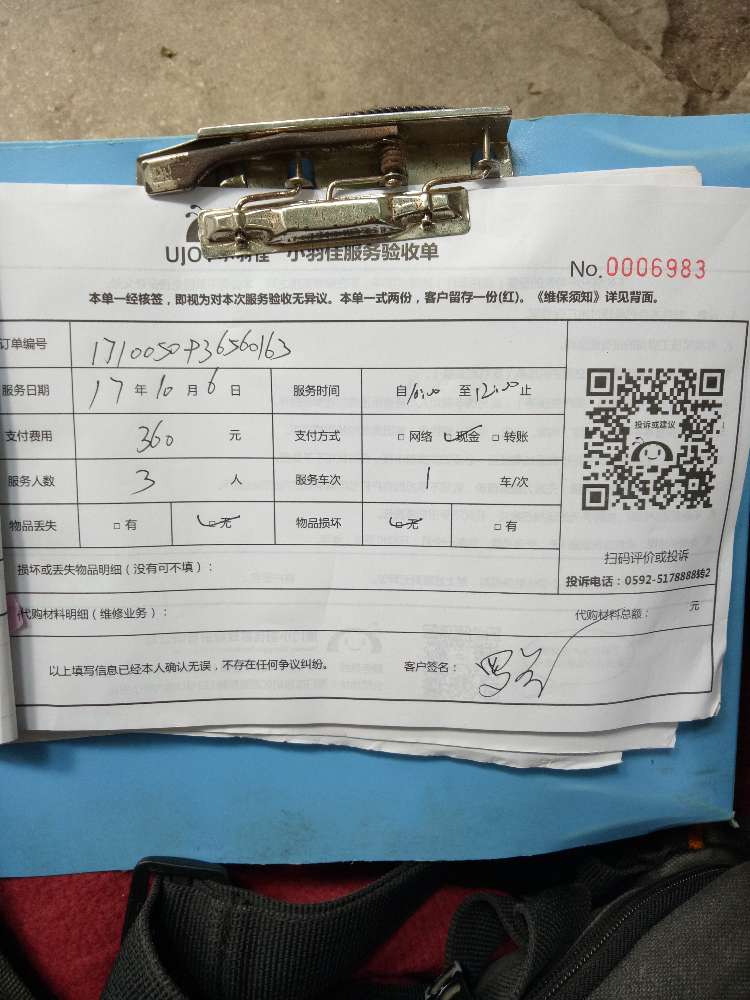 小羽佳服务验收单
No.0006983
本单一经核签，即视为对本次服务验收无异议。本单一式两份，客户留存一份(红)。《维保须知》详见背面。
订单编号
服务日期 17 年 10 月 6 日 服务时间 自10:00 至12:00止
支付费用 360 元 支付方式 □ 网络 □ 现金 □ 转账
服务人数 3 人 服务车次 1 车/次
物品丢失 □ 有 □ 无 物品损坏 □ 无 □ 有
投诉或建议
扫码评价或投诉
投诉电话：0592-5178888转2
损坏或丢失物品明细（没有可不填）：
代购材料明细（维修业务）： 代购材料总额： 元
以上填写信息已经本人确认无误，不存在任何争议纠纷。 客户签名：